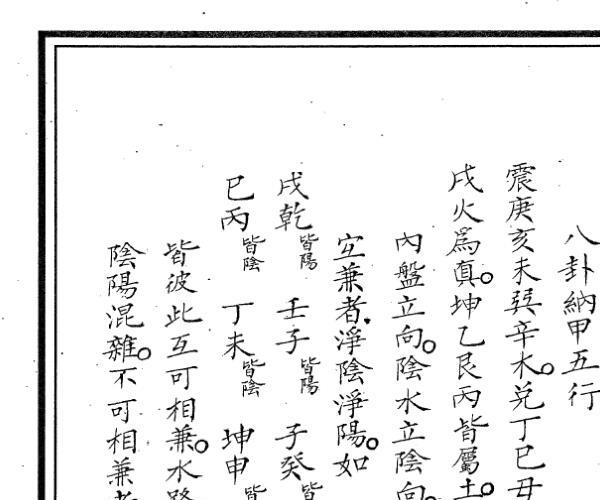 八卦納甲五行
震庚亥未巽辛木。兌丁巳丑
戌火爲真。坤乙艮丙皆屬土。
內盤立向。陰水立陰向。
宜兼者。淨陰淨陽。如
戌乾皆陽 壬子皆陽 子癸皆
巳丙皆陰 丁未皆陰 坤申皆
皆彼此互可相兼。水路
陰陽混雜。不可相兼者